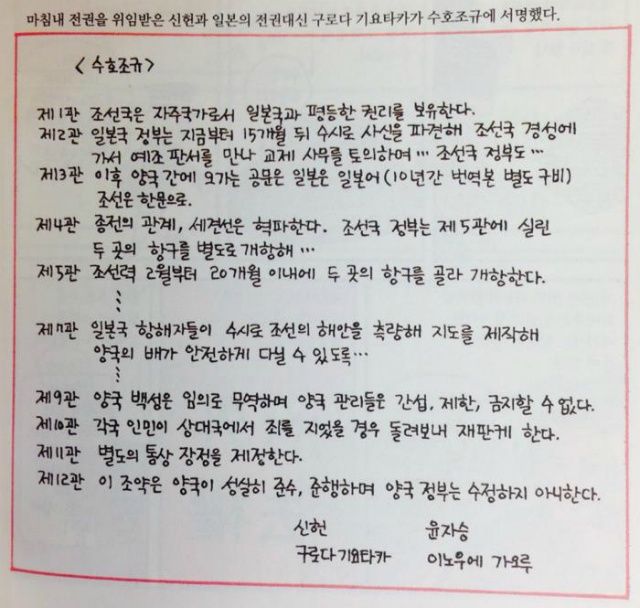 마침내 전권을 위임받은 신헌과 일본의 전권대신 구로다 기요타카가 수호조규에 서명했다.
<수호조규>
제1관 조선국은 자주국가로서 일본국과 평등한 권리를 보유한다.
제2관 일본국 정부는 지금부터 15개월 뒤 수시로 사신을 파견해 조선국 경성에
가서 예조 판서를 만나 교제 사무를 토의하며… 조선국 정부도…
제13관 이후 양국 간에 오가는 공문은 일본은 일본어(10년간 번역본 별도 구비)
조선은 한문으로.
제4관 종전의 관계, 세견선은 혁파한다. 조선국 정부는 제5관에 실린
두 곳의 항구를 별도로 개항해…
제5관 조선력 2월부터 20개월 이내에 두 곳의 항구를 골라 개항한다.
⋮
제7관 일본국 항해자들이 수시로 조선의 해안을 측량해 지도를 제작해
양국의 배가 안전하게 다닐 수 있도록…
⋮
제9관 양국 백성은 임의로 무역하며 양국 관리들은 간섭, 제한, 금지할 수 없다.
제10관 각국 인민이 상대국에서 죄를 지었을 경우 돌려보내 재판케 한다.
제11관 별도의 통상 장정을 제정한다.
제12관 이 조약은 양국이 성실히 준수, 준행하며 양국 정부는 수정하지 아니한다.
신헌 윤자승
구로다 기요타카 이노우에 가오루